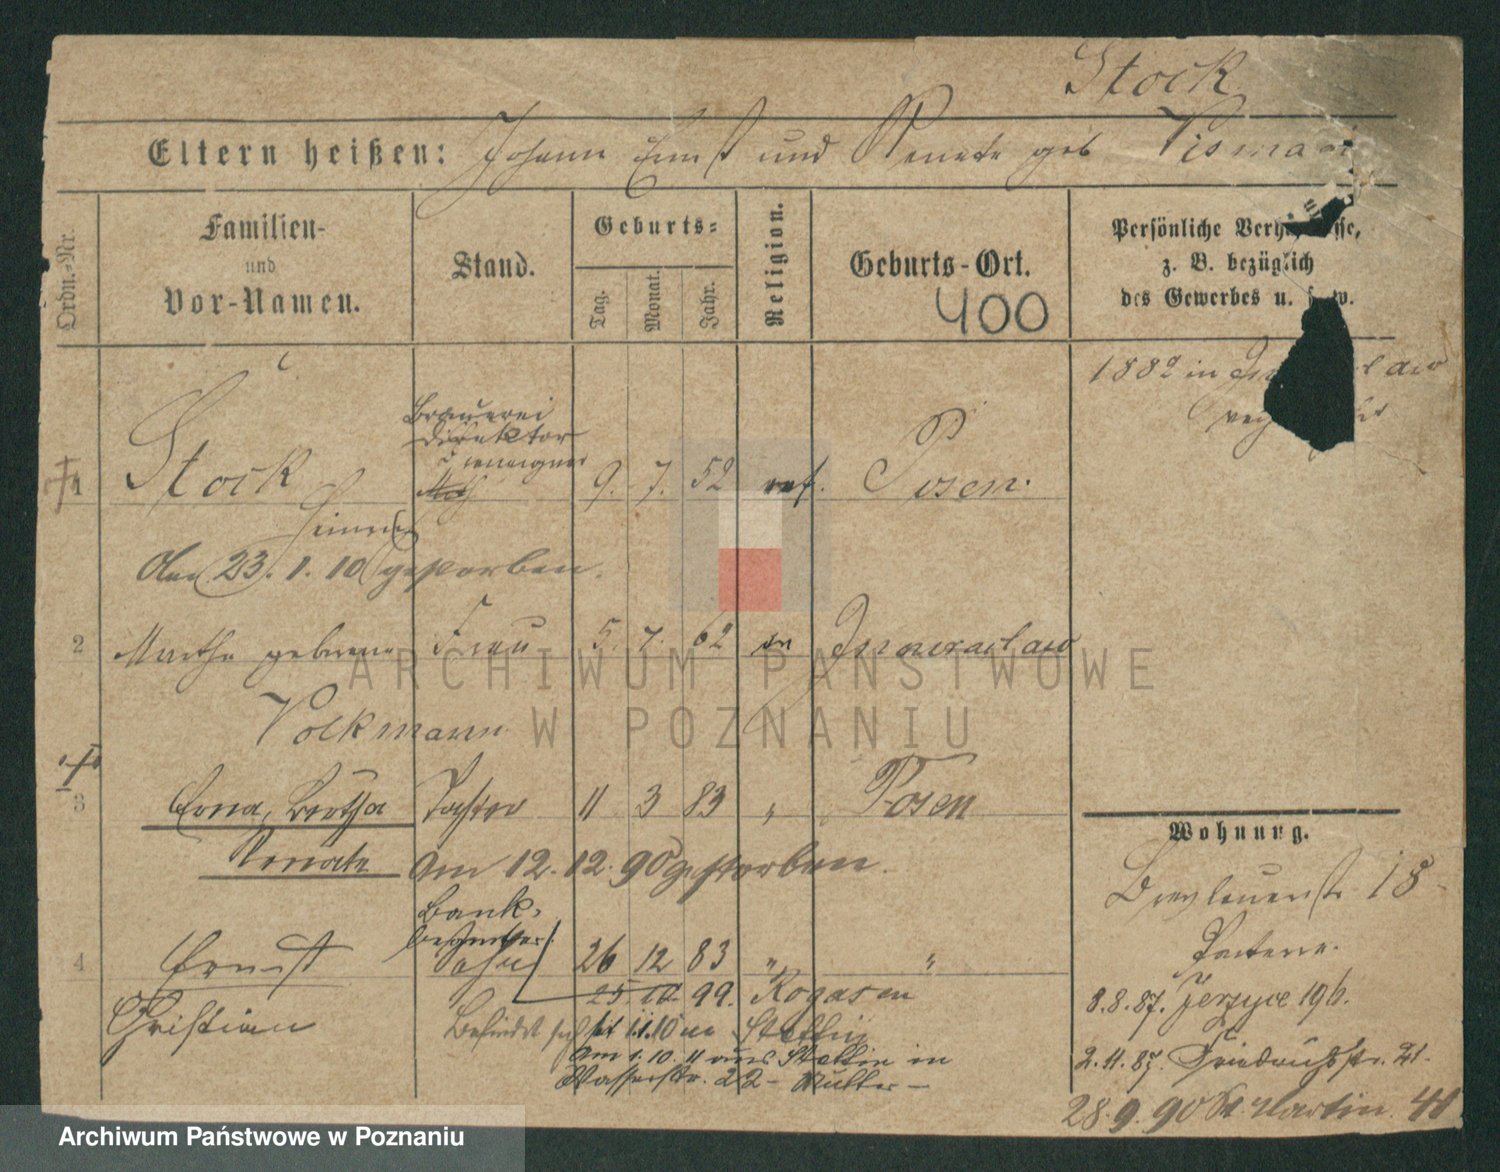 Stock
Eltern heißen: Johann Ernst und Renate geb
Ordn.-Nr.
Familien-
und
Vor-Namen.
Stand.
Geburts-
Tag.
Monat.
Jahr.
Religion.
Geburts-Ort.
400
Persönliche
z. B. bezüglich
des Gewerbes u.
1882 in
Brauerei
direktor
1 Stock 9. 7. 52 ref. Posen.
Den 23. 1. 10 gestorben.
2 Martha geborene Frau 5. 7. 62 Inowraclaw
Volkmann
3 Erna, Bertha Tochter 11 3 83 " Posen
Renate Am 12. 12. 90 gestorben.
Bank-
4 Ernst Sohn 26 12 83 " "
25. 10 99. Rogasen
Christian Befindet sich seit 1.1.10 in Stettin
Am 1. 10. 11 aus Stettin in
Wasserstr. 22 - Mutter -
Wohnung.
18
Parterre.
8.8.87. Jerzyce 196.
2.11.87. Friedrichstr. 21.
28.9.90 St. Martin. 41
ARCHIWUM PAŃSTWOWE
W POZNANIU
Archiwum Państwowe w Poznaniu